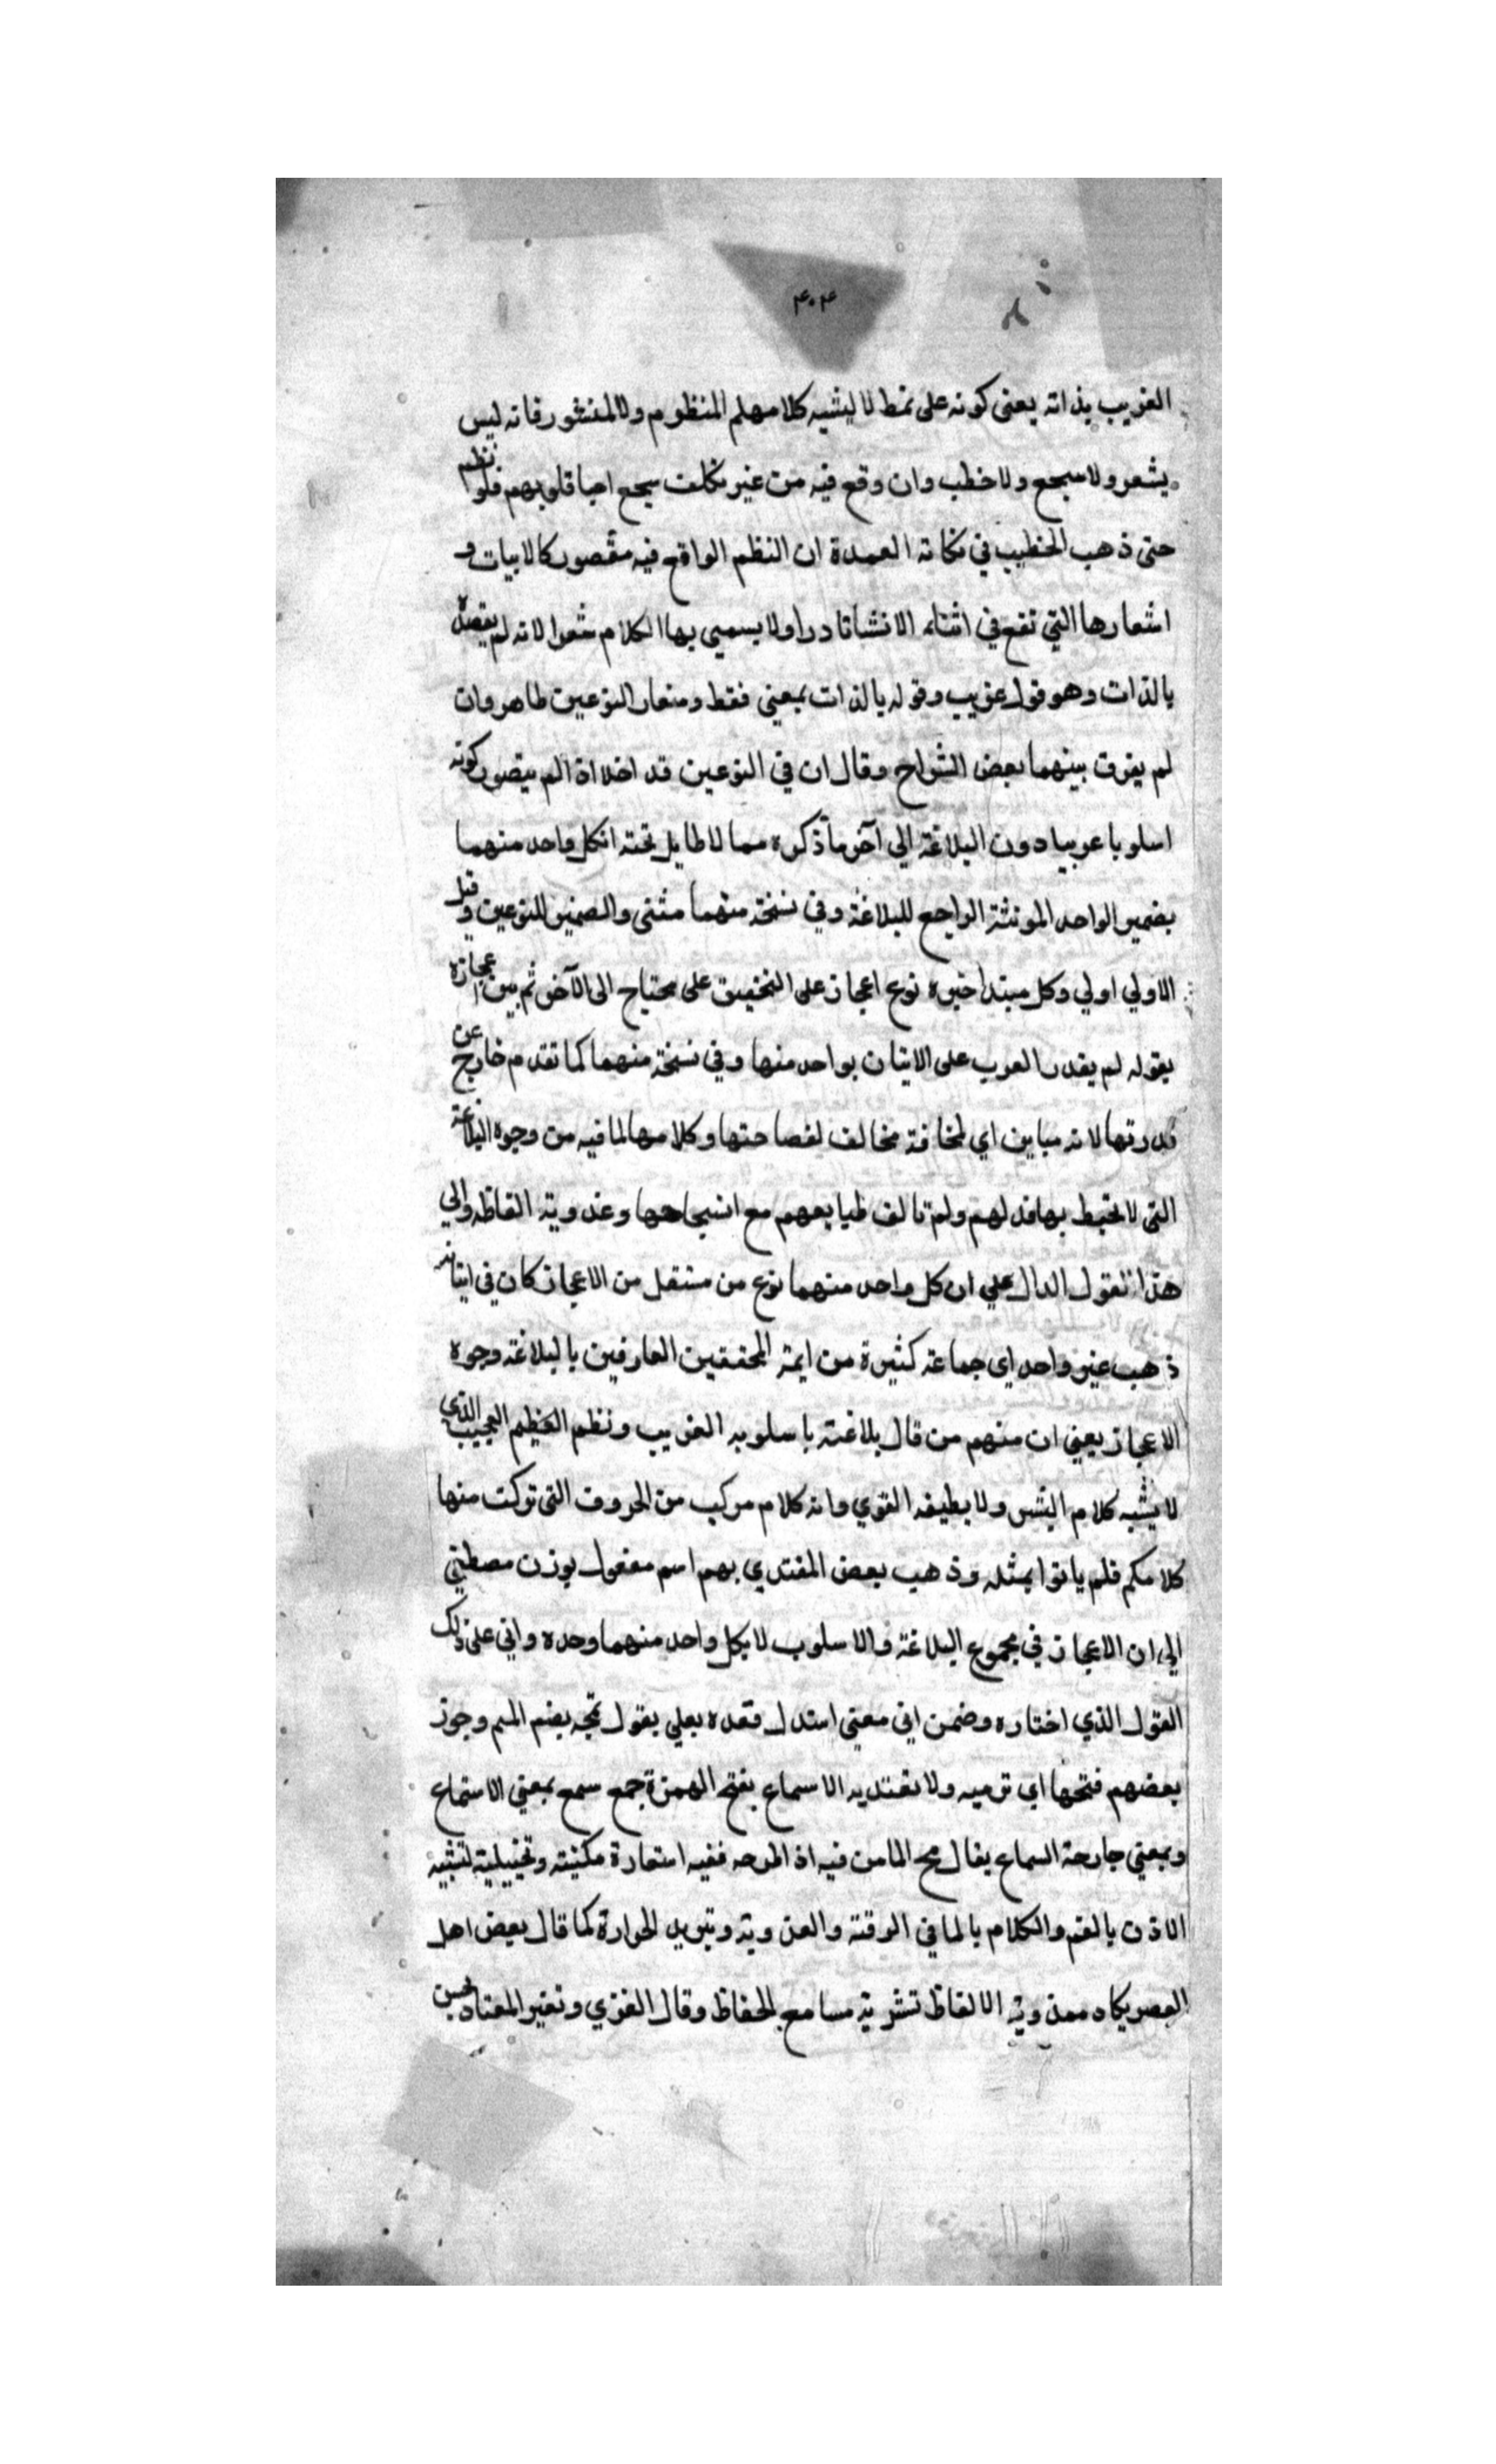 ٤٠٤
الغريب بذاته يعنى كونه على نمط لا يشبه كلامهلم المنظوم ولالمنثور فانه ليس
بشعر ولا سجع ولا خطب وان وقع فيه من غير تكلف سجع احيا قلوبهم فلو انظم
حتى ذهب الخطيب في نكاته العمدة ان النظم الواقع فيه مقصور كالابيات و
اشعارها التي تقع في اثناء الانشا نادرا ولا يسمي بها الكلام شعرا لانه لم يقصد
بالذات وهو قول غريب وقوله بالذات بمعني فقط ومتعار النوعين ظاهر وان
لم يفرق بينهما بعض الشراح وقال ان في النوعين قد اخلا اذا لم يتصور كونه
اسلوبا عربيا دون البلاغة الي آخر ما ذكره مما لا طايل تحته انكل واحد منهما
بضمير الواحد المونثة الراجع للبلاغة وفي نسخة منهما مثنى والضمير للنوعين وقيل
الاولي اولي وكل مبتدا خبره نوع اعجاز على التحقيق على محتياج الى الآخر ثم بين اعجازه
بقوله لم يقدر العرب على الاتيان بواحد منها وفي نسخة منهما كما تقدم خارج عن
قدرتها لانه مباين اي لمخافة مخالف لفصاحتها وكلامها لما فيه من وجوه البلاغة
التى لا تحيط بها قدلهم ولم تالف طبايعهم مع انسجامها وعذوبة الفاظه والي
هذا القول الدال علي ان كل واحد منهما نوع من مستقل من الاعجاز كان في اتيانه
ذهب غير واحد اي جماعة كثيرة من ايمة المحققين العارفين بالبلاغة وجوه
الاعجاز يعني ان منهم من قال بلاغته باسلوبه الغريب ونظم العظيم العجيب الذي
لا يشبه كلام البشر ولا يطيقه القوي وانه كلام مركب من الحروف التى تركت منها
كلامكم فلم ياتوا بمثله وذهب بعض المقتدي بهم اسم مفعول بوزن مصطفي
الي ان الاعجاز في مجموع البلاغة والاسلوب لا بكل واحد منهما وحده واتى على ذلك
القول الذي اختاره وضمن اتى معنى استدل فعده بعلي بقول تمجه بضم الميم وجوز
بعضهم فتحها اي ترميه ولا تقتديه الاسماع بفتح الهمزة جمع سمع بمعني الاستماع
وبمعني جارحة السماع يقال مج الما من فيه اذا طرحه ففيه استعارة مكنية وتخييلية لتشبيه
الاذن بالفم والكلام بالما في الرقة والعذوبة وتبريد الحرارة كما قال بعض اهل
العصر يكاد معذوبة الالفاظ تشربة مسامع الحفاظ وقال الغزي وتغير المعتاد يحسن